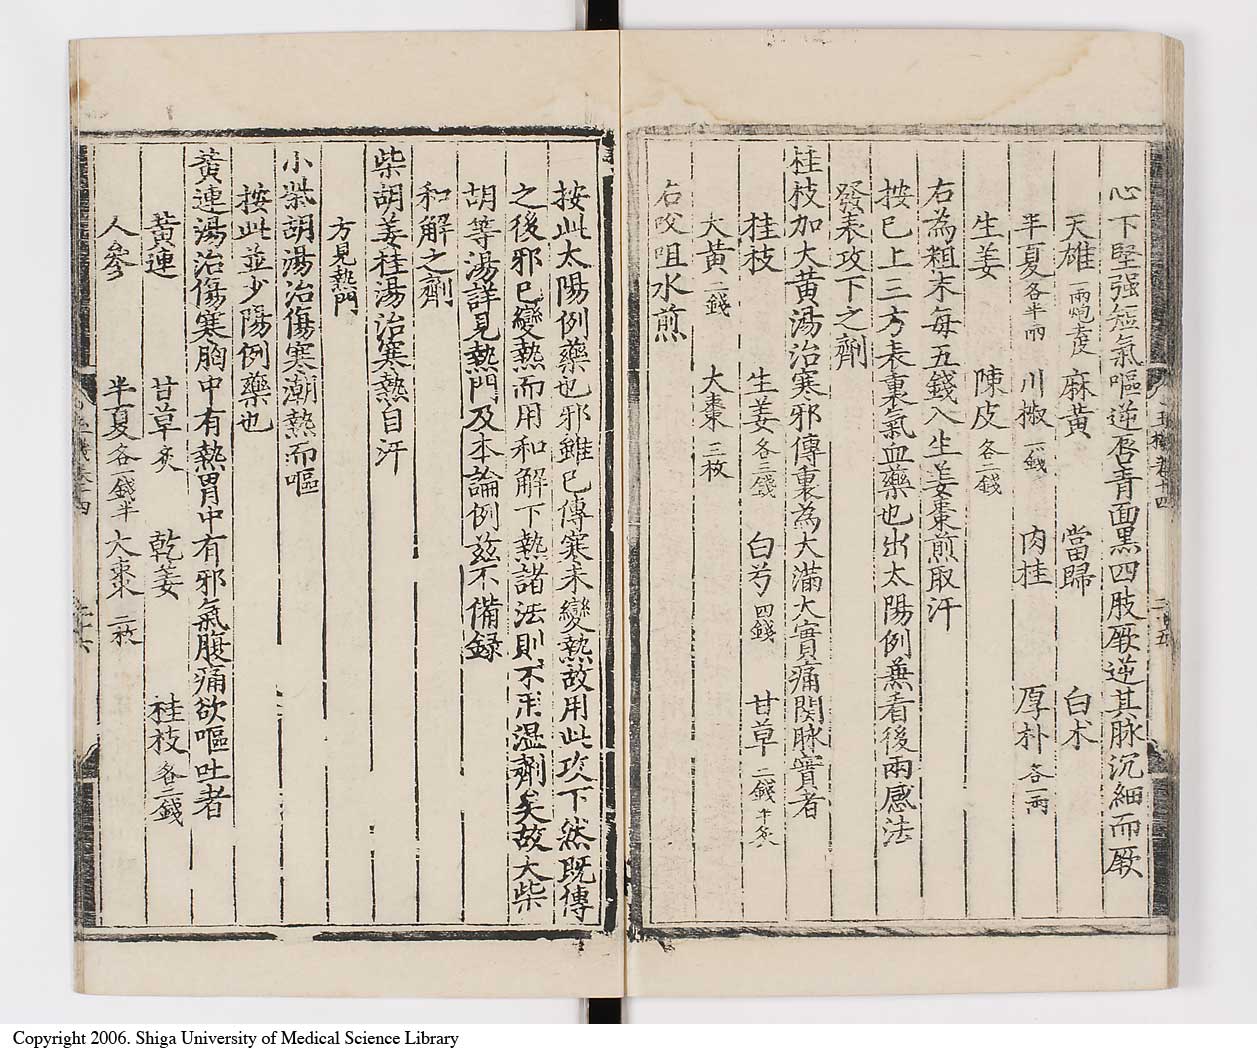 心下堅强短氣嘔逆唇青面黑四肢厥逆其脉沉細而厥
天雄一兩炮去皮 麻黃 當歸 白朮
半夏各半兩 川椒一錢 肉桂 厚朴各一兩
生姜 陳皮各二錢
右為粗末每五錢入生姜棗煎取汗
按已上三方表裏氣血藥也出太陽例兼看後兩感法
發表攻下之劑
桂枝加大黃湯治寒邪傳裏為大滿大實痛関脉實者
桂枝 生姜各三錢 白芍四錢 甘草二錢半炙
大黃二錢 大棗三枚
右㕮咀水煎
按此太陽例藥也邪雖已傳寒未變熱故用此攻下然既傳
之後邪已變熱而用和解下熱諸法則不用温劑矣故大柴
胡等湯詳見熱門及本論例玆不備録
和解之劑
柴胡姜桂湯治寒熱自汗
方見熱門
小柴胡湯治傷寒潮熱而嘔
按此並少陽例藥也
黃連湯治傷寒胸中有熱胃中有邪氣腹痛欲嘔吐者
黃連 甘草炙 乾姜 桂枝各三錢
人參 半夏各一錢半 大棗二枚
Copyright 2006. Shiga University of Medical Science Library